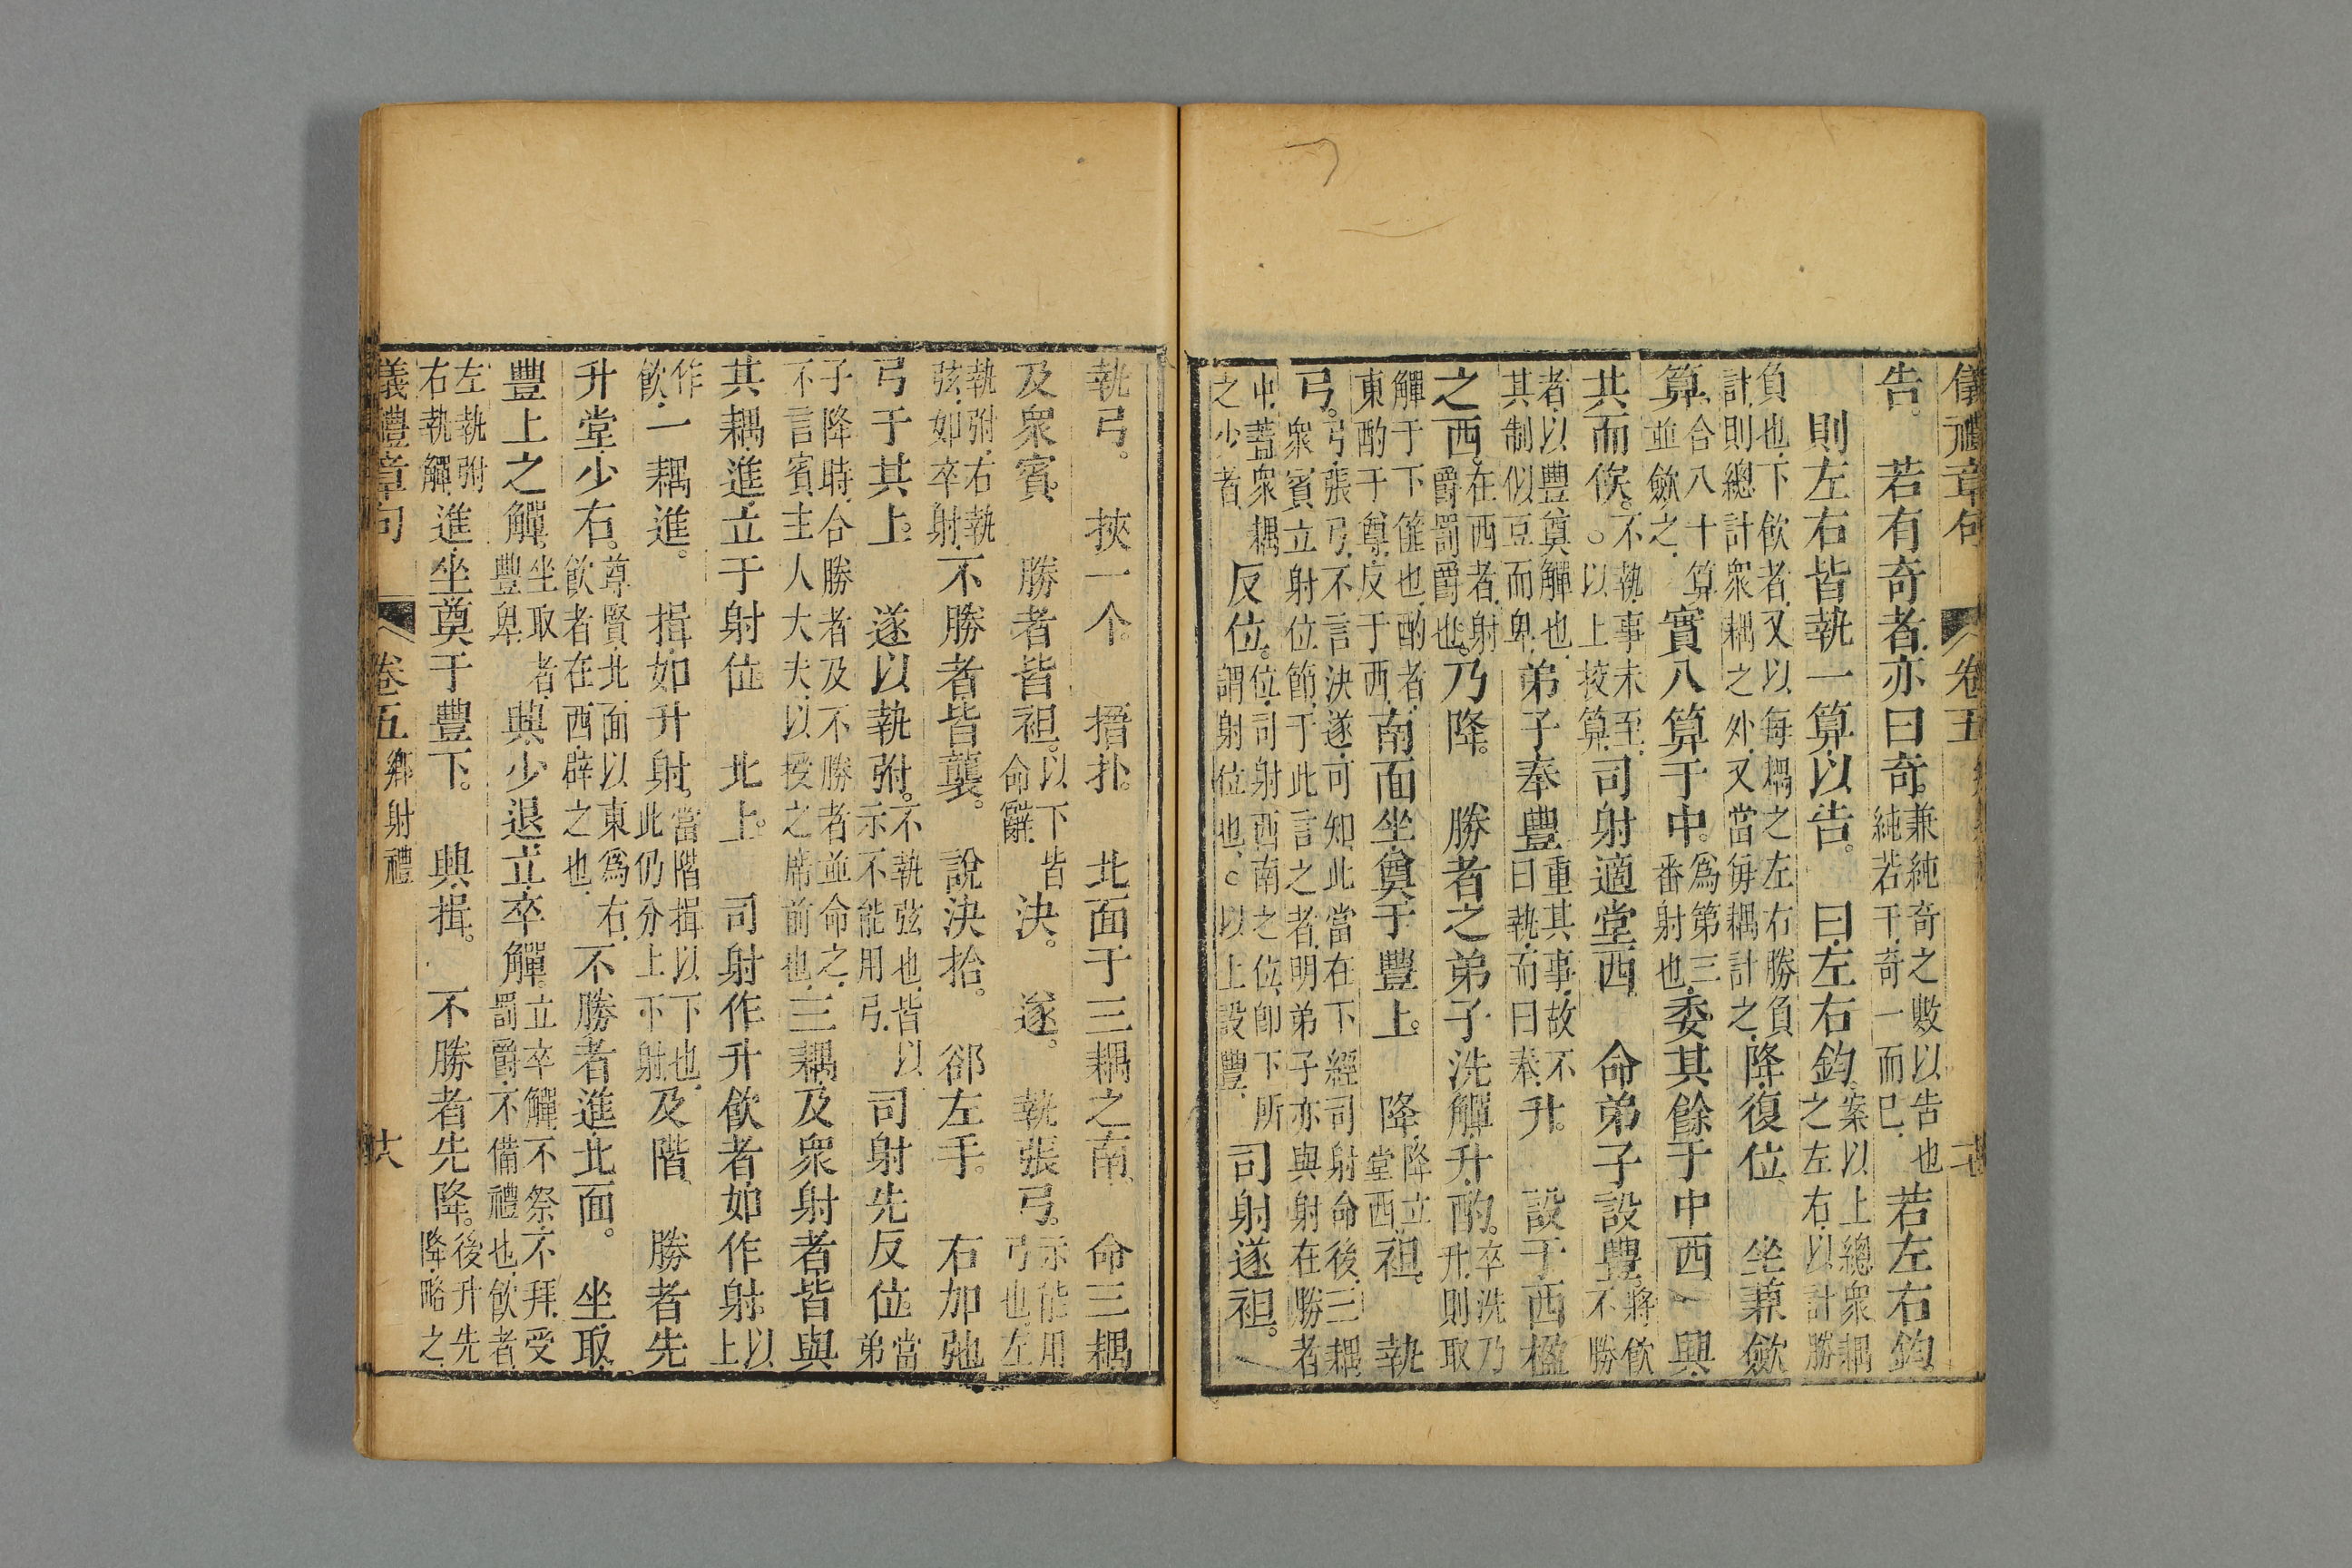 儀禮章句 卷五
告。 若有奇者、亦曰奇。兼純奇之數以告也純若干、奇一而巳、若左右鈞。
則左右皆執一算、以告。 曰、左右鈞、案以上總衆耦之左右、以計勝
負也、下飮者、又以每耦之左右勝負計、則總計衆耦之外、又當每耦計之、降、復位、 坐兼斂
算、合八十算並斂之、實八算于中。爲第三番射也、委其餘于中西、 興
共而俟。不執事未至、○以上挍算、司射適堂西、 命弟子設豐、將飮不勝
者、以豐奠觶也、其制似豆而卑、弟子奉豐、重其事、故不曰執、而曰奉、升。 設于西楹
之西。在西者、射爵罰爵也。乃降。 勝者之弟子洗觶、升、酌。卒洗乃升、則取
觶于下篚也、酌者、東酌于尊、反于西、南面坐、奠于豐上。 降、降立堂西、袒、 執
弓。弓、張弓、不言決遂、可知、此當在下經司射命後、三耦衆賓立射位節、于此言之者、明弟子亦與射在勝者
中、蓋衆耦之少者、反位。位、司射西南之位、卽下所謂射位也。○以上設豐、司射遂袒。
執弓。 挾一个。 搢扑。 北面于三耦之南、 命三耦
及衆賓、 勝者皆袒。以下皆命辭、決。 遂。 執張弓。示能用弓也、左
執弣、右執弦、如卒射、不勝者皆襲。 說決拾。 郤左手。 右加弛
弓于其上。 遂以執弣。不執弦也、皆以示不能用弓、司射先反位。當弟
子降時、合勝者及不勝者並命之、不言賓、主人大夫、以授之席前也、三耦及衆射者皆與
其耦進、立于射位、 北上。 司射作升飮者、如作射、以上
作飮、一耦進。 揖、如升射、當階揖以下也、此仍分上下射、及階、 勝者先
升堂、少右。尊賢、北面以東爲右、飮者在西、辟之也、不勝者進、北面。 坐取
豐上之觶、坐取者、豐卑、興、少退、立卒觶。立卒觶、不祭、不拜、受罰爵、不備禮也、飮者、
左執弣右執觶、進、坐奠于豐下。 興、揖。 不勝者先降。後升先降、略之、
儀禮章句 卷五 鄉射禮